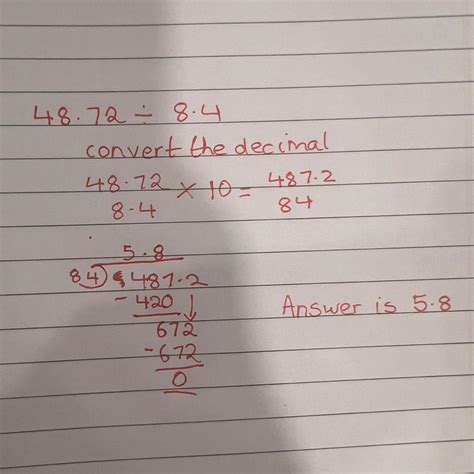 48.72 ÷ 8.4
convert the decimal
48.72 × 10 = 487.2
8.4 84
5.8
84 487.2
- 420
672
- 672
0
Answer is 5.8